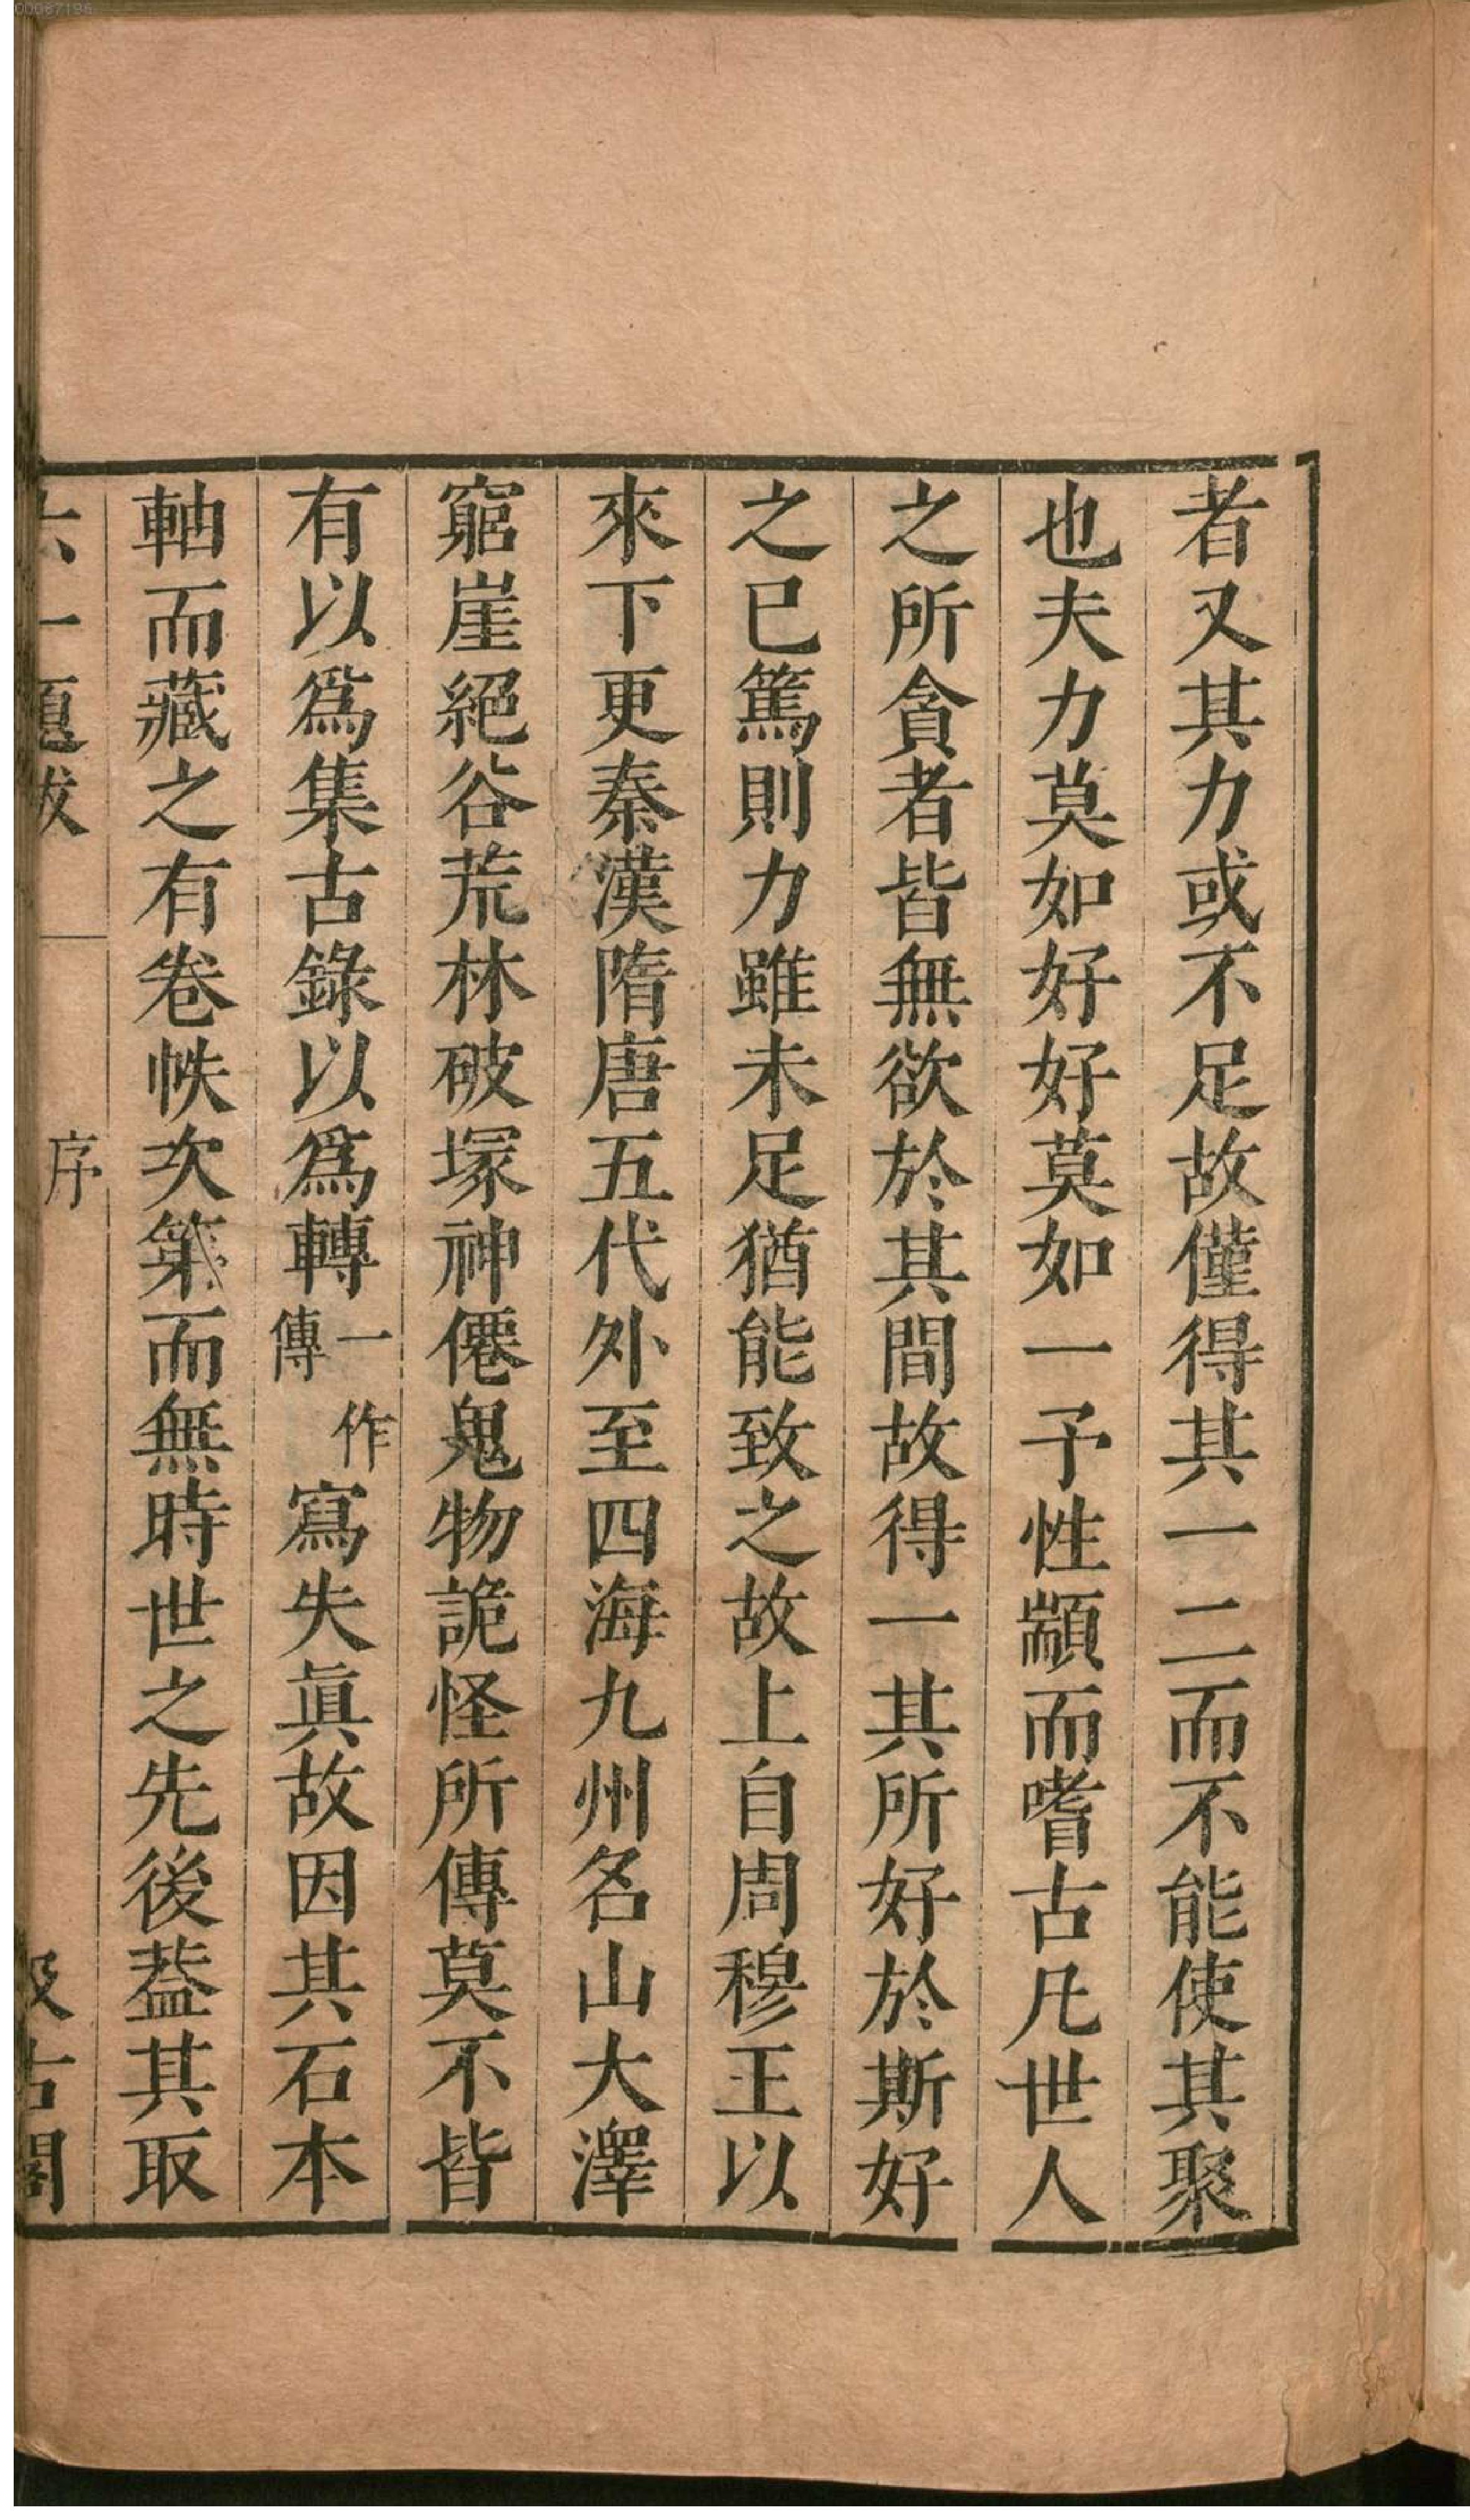 者又其力或不足故僅得其一二而不能使其聚
也夫力莫如好好莫如一予性顓而嗜古凡世人
之所貪者皆無欲於其間故得一其所好於斯好
之已篤則力雖未足猶能致之故上自周穆王以
來下更秦漢隋唐五代外至四海九州名山大澤
窮崖絕谷荒林破塚神僊鬼物詭怪所傳莫不皆
有以爲集古錄以爲轉一作傳寫失眞故因其石本
軸而藏之有卷帙次第而無時世之先後葢其取
六一題跋 序 汲古閣
00087196